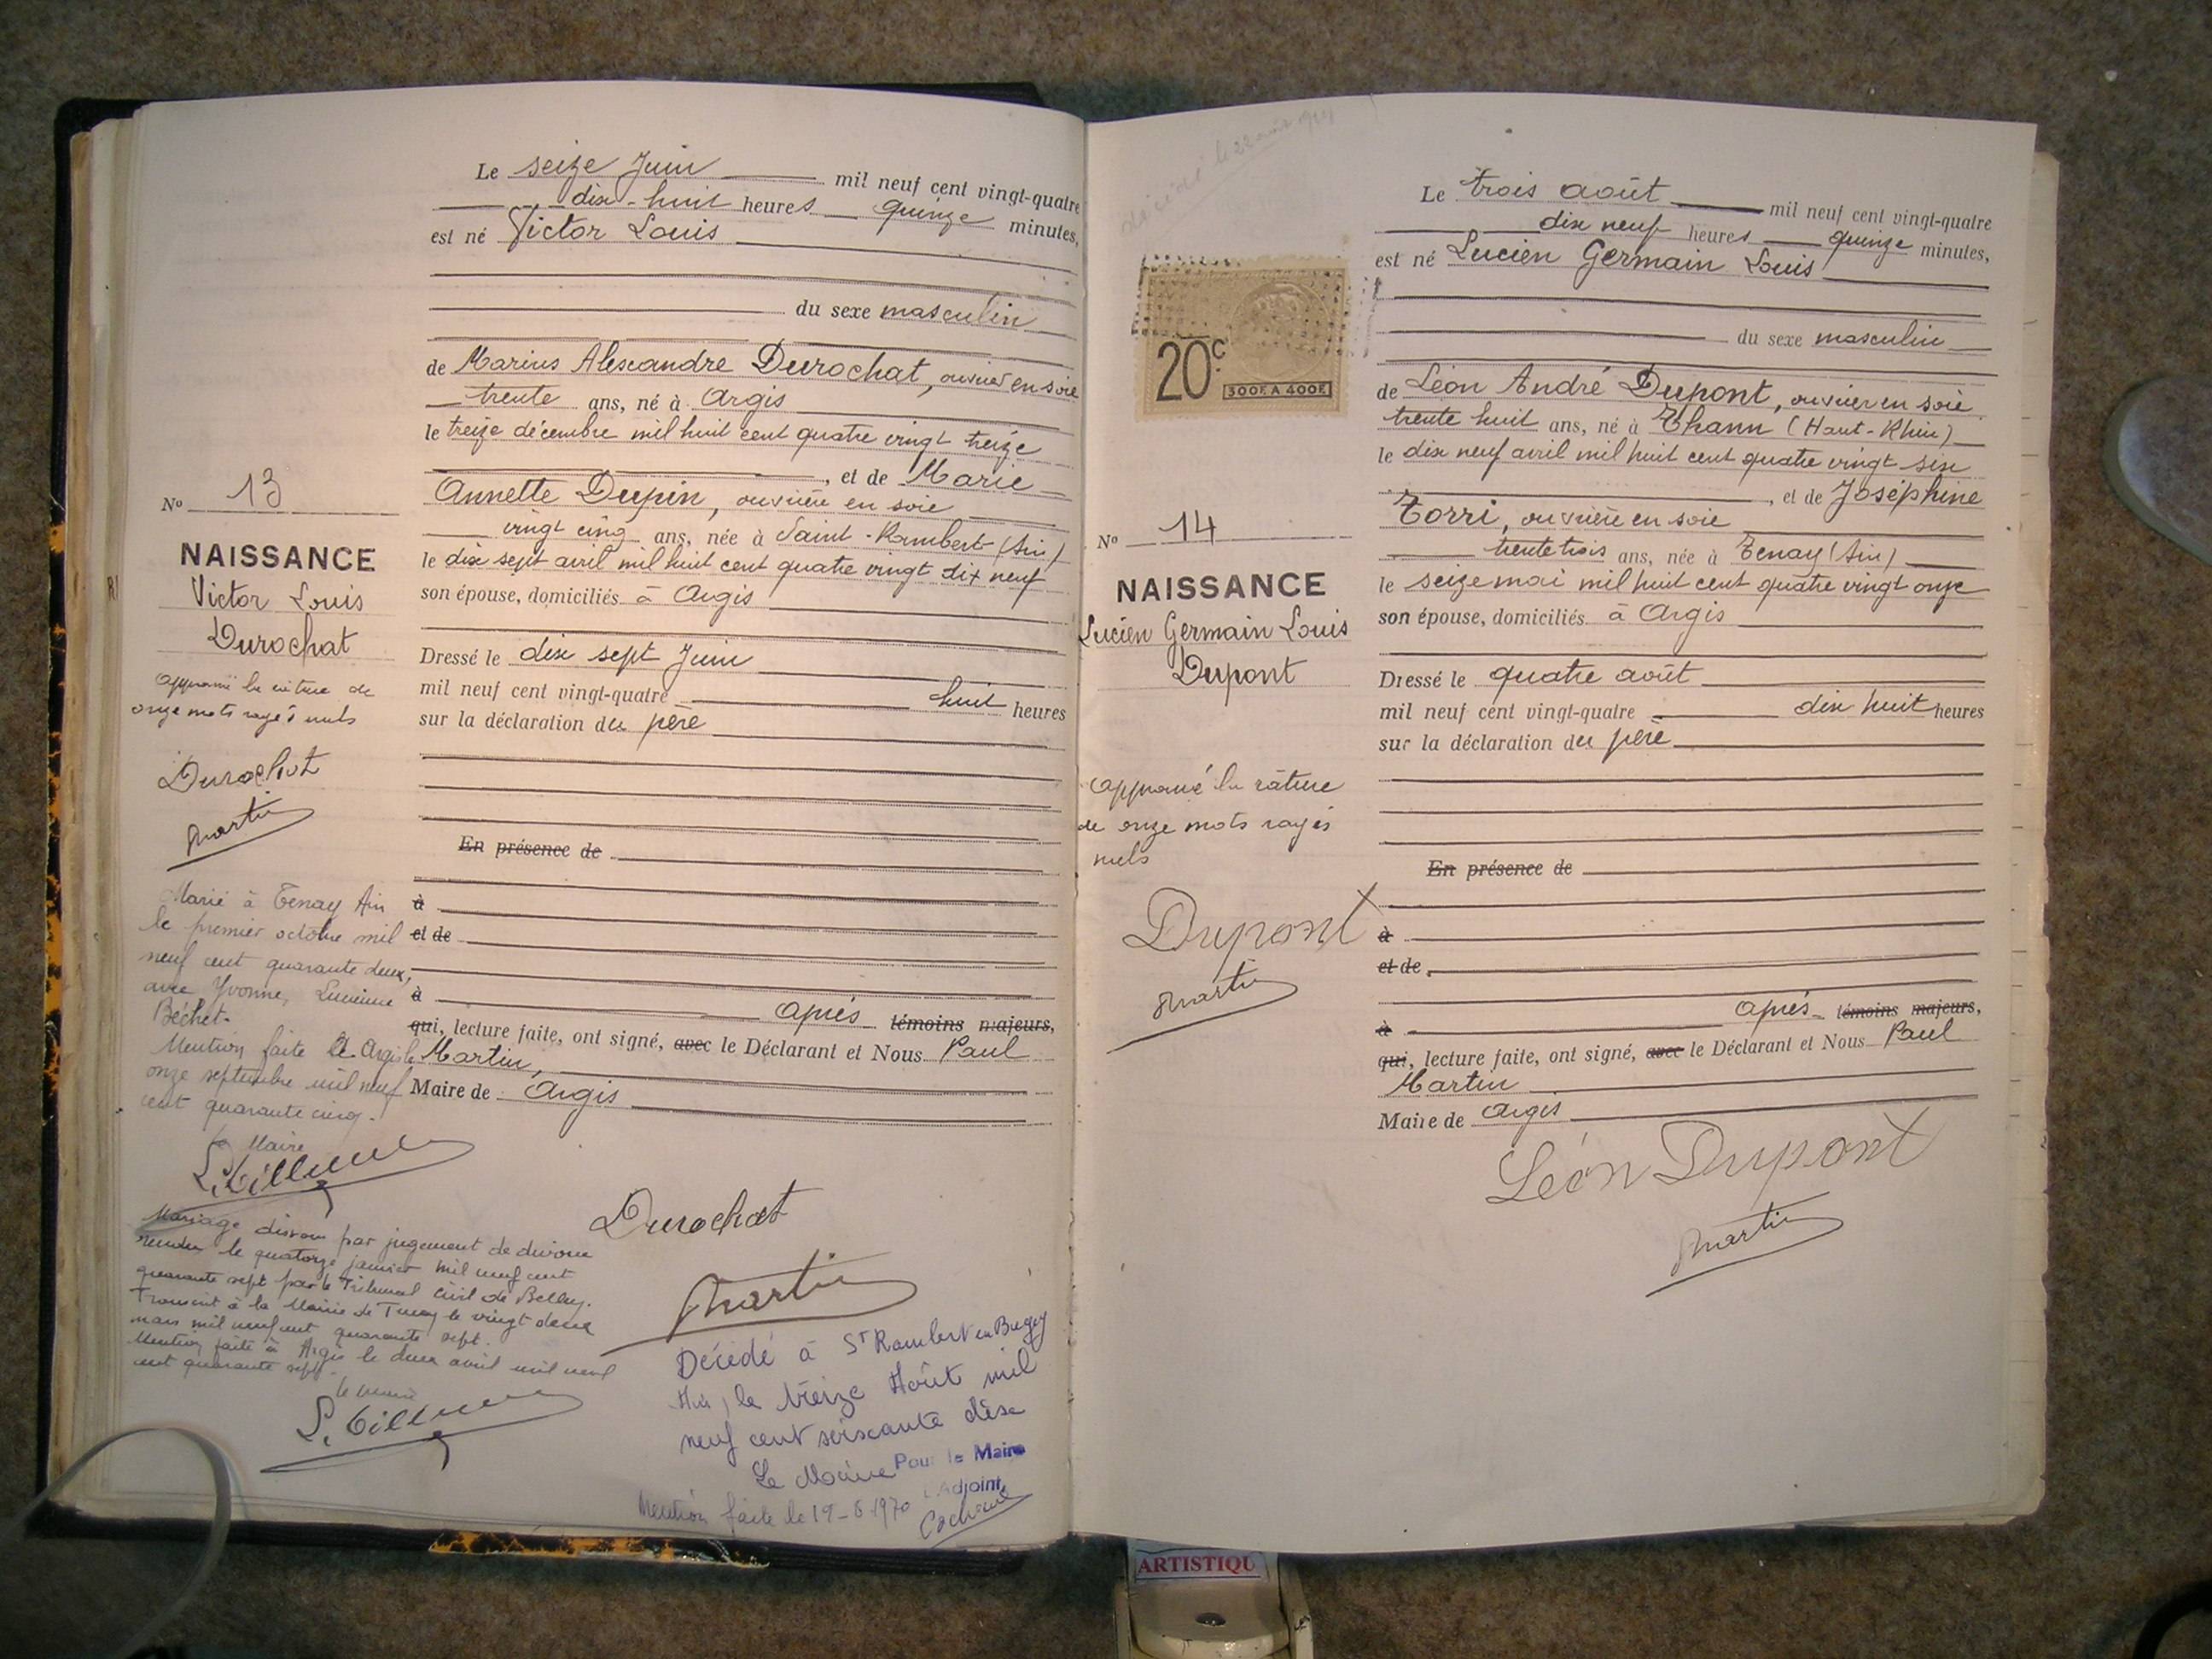 Le seize Juin mil neuf cent vingt-quatre
dix-huit heures quinze minutes,
est né Victor Louis
du sexe masculin
de Marius Alexandre Durochat, ouvrier en soie
trente ans, né à Argis
le treize décembre mil huit cent quatre vingt treize
, et de Marie
Annette Dupin, ouvrière en soie
vingt cinq ans, née à Saint-Rambert (Ain)
le dix sept avril mil huit cent quatre vingt dix neuf
son épouse, domiciliés à Argis
Dressé le dix sept Juin
mil neuf cent vingt-quatre huit heures
sur la déclaration du père
En présence de
à
et de
à après témoins majeurs,
qui, lecture faite, ont signé, avec le Déclarant et Nous Paul
Martin,
Maire de Argis
Durochat
Martin
Décédé à St Rambert en Bugey
Ain, le treize Août mil
neuf cent soixante dix
Le Maire Pour le Maire
L'Adjoint,
Mention faite le 19-8-1970
No 13
NAISSANCE
Victor Louis
Durochat
Approuvé la rature de
onze mots rayés nuls
Durochat
Martin
Marié à Tenay Ain
le premier octobre mil
neuf cent quarante deux,
avec Yvonne, Lucienne
Béchet.
Mention faite à Argis le
onze septembre mil neuf
cent quarante cinq.
Le Maire
Mariage dissous par jugement de divorce
rendu le quatorze janvier mil neuf cent
quarante sept par le Tribunal Civil de Belley.
Transcrit à la Mairie de Tenay le vingt deux
mars mil neuf cent quarante sept.
Mention faite à Argis le deux avril mil neuf
cent quarante sept.
le maire
décédé le 22
20c
300F. A 400F.
No 14
NAISSANCE
Lucien Germain Louis
Dupont
Approuvé la rature
de onze mots rayés
nuls
Dupont
Martin
Le trois août mil neuf cent vingt-quatre
dix neuf heures quinze minutes,
est né Lucien Germain Louis
du sexe masculin
de Léon André Dupont, ouvrier en soie
trente huit ans, né à Thann (Haut-Rhin)
le dix neuf avril mil huit cent quatre vingt six
, et de Joséphine
Torri, ouvrière en soie
trente trois ans, née à Tenay (Ain)
le seize mai mil huit cent quatre vingt onze
son épouse, domiciliés à Argis
Dressé le quatre août
mil neuf cent vingt-quatre dix huit heures
sur la déclaration du père
En présence de
à
et de
à après témoins majeurs,
qui, lecture faite, ont signé, avec le Déclarant et Nous Paul
Martin
Maire de Argis
Léon Dupont
Martin
ARTISTIQU